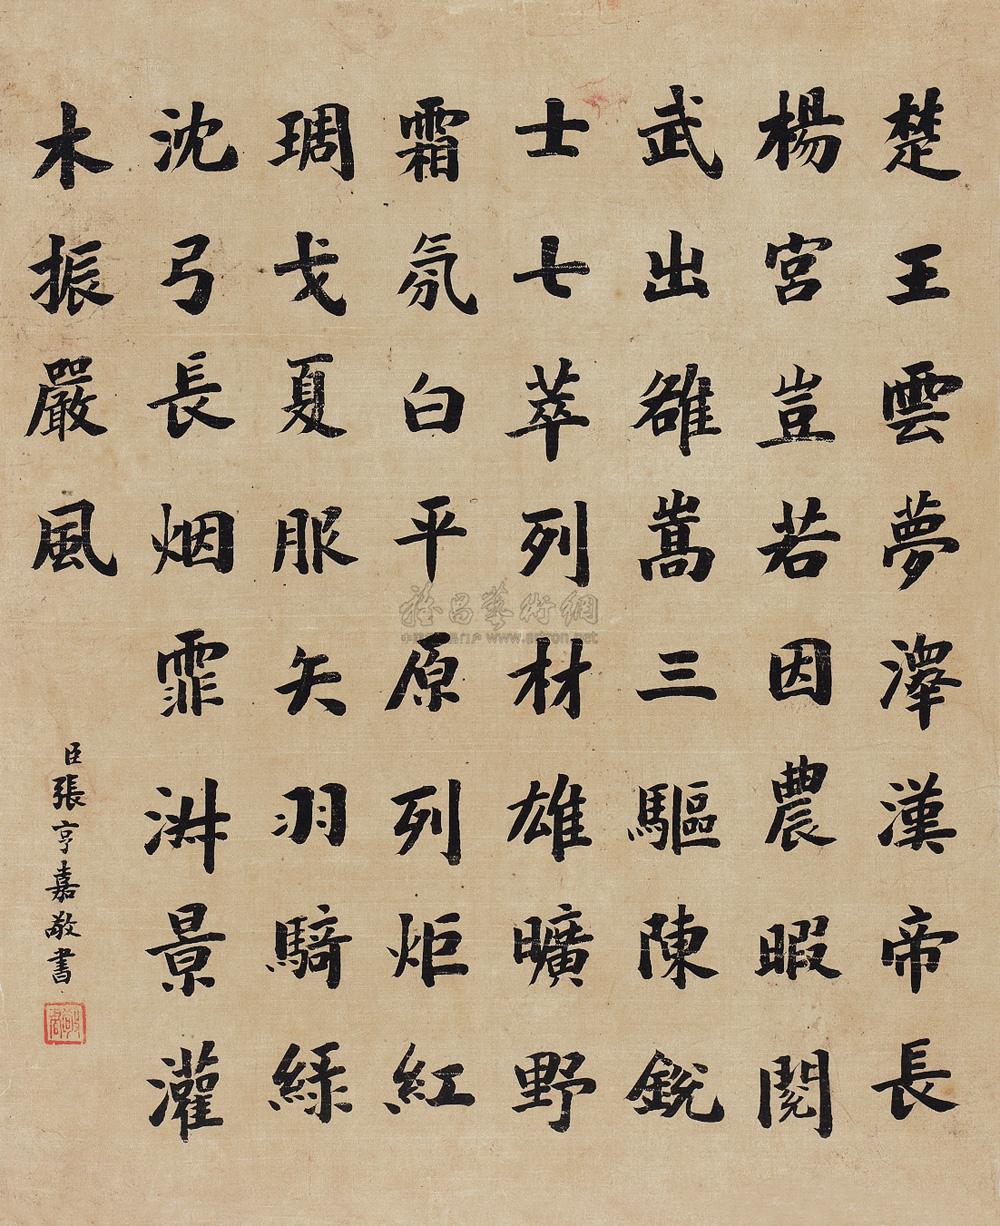 楚王雲夢澤漢帝長
楊宮豈若因農暇閱
武出雒嵩三驅陳銳
士七萃列材雄曠野
霜氛白平原列炬紅
琱戈夏服矢羽騎綠
沈弓長烟霏浰景灌
木振嚴風
臣張亨嘉敬書
www.artron.net